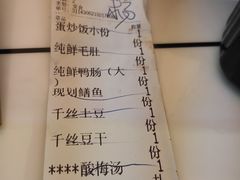 蛋炒饭小份 1份
纯鲜毛肚 1份
纯鲜鸭肠（大） 1份
现划鳝鱼 1份
千丝土豆 1份
千丝豆干 1份
****酸梅汤 1